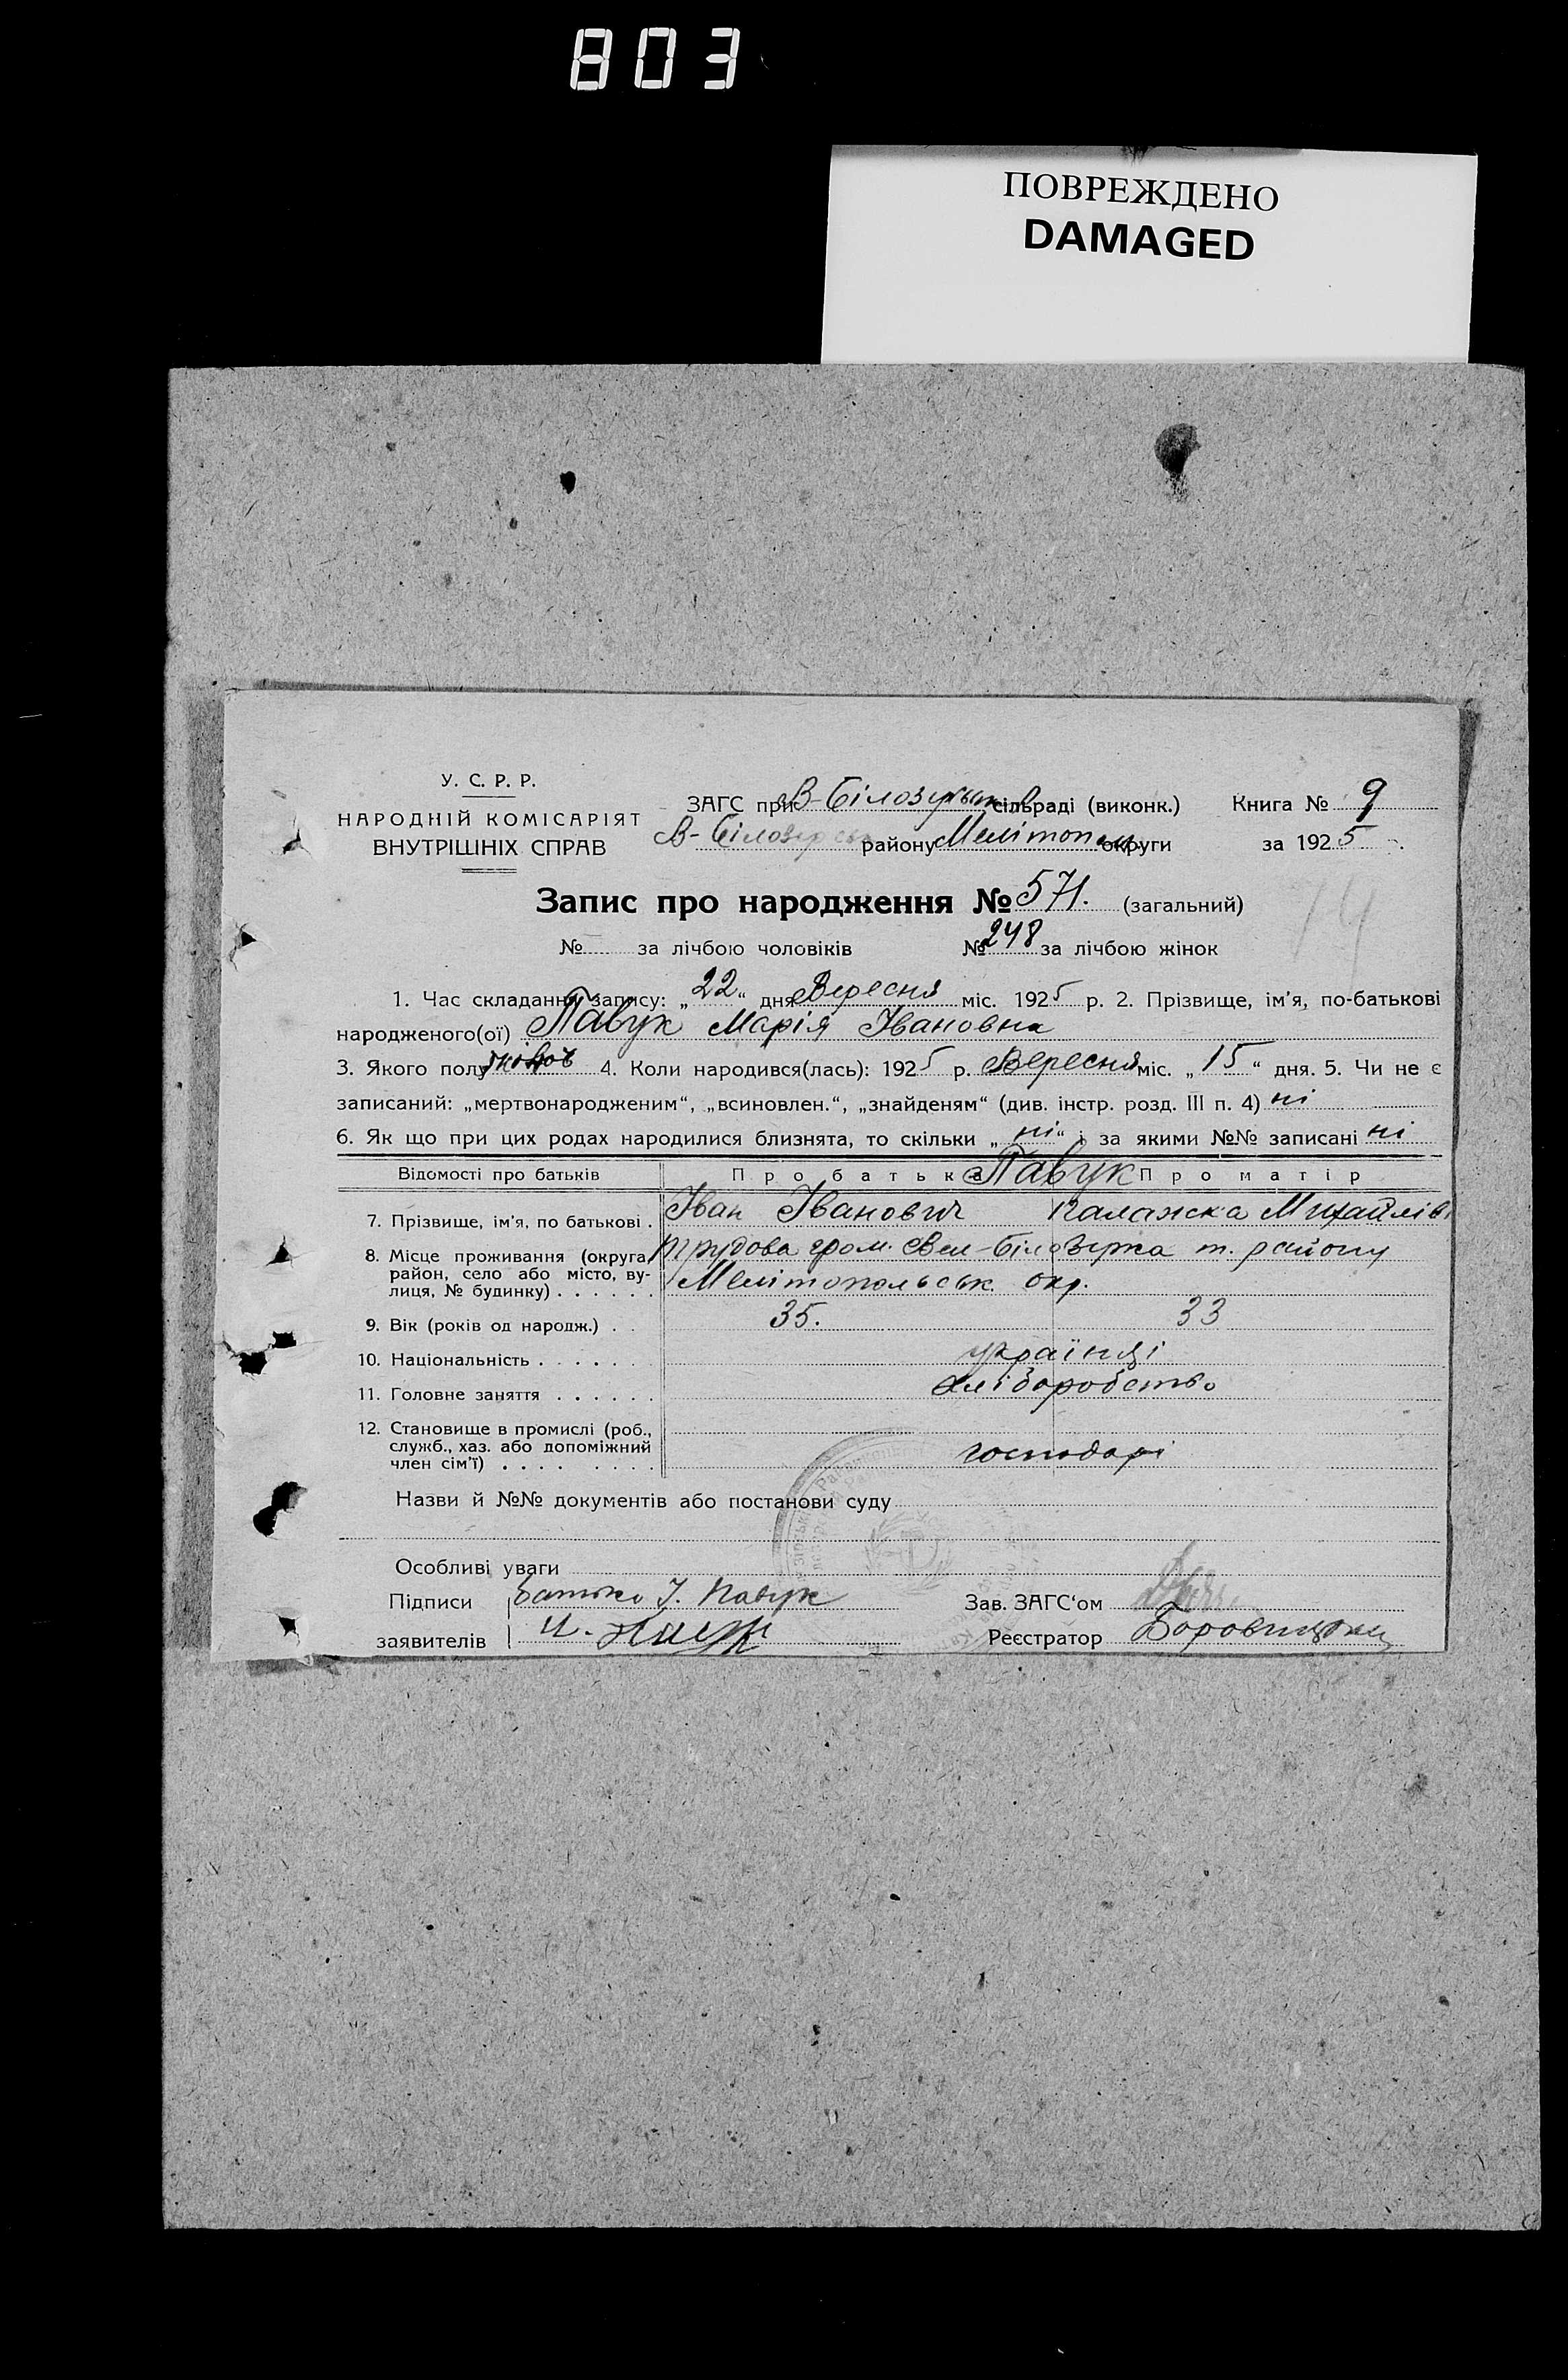 803
ПОВРЕЖДЕНО
DAMAGED
У. С. Р. Р.
НАРОДНІЙ КОМІСАРІЯТ
ВНУТРІШНІХ СПРАВ
ЗАГС при В-Білозірськ сільраді (виконк.)
В-Білозірськ району Мелітоп округи
Книга № 9
за 1925
14
Запис про народження № 571. (загальний)
№ за лічбою чоловіків № 248 за лічбою жінок
1. Час складання запису: „22“ дня Вересня міс. 1925 р. 2. Прізвище, ім’я, по-батькові
народженого(ої) Павук Марія Івановна
3. Якого полу 4. Коли народився(лась): 1925 р. Вересня міс. „15“ дня. 5. Чи не є
записаний: „мертвонародженим“, „всиновлен.“, „знайденям“ (див. інстр. розд. III п. 4) ні
6. Як що при цих родах народилися близнята, то скільки „ні“ і за якими №№ записані ні
Відомості про батьків Про батька Павук Про матір
7. Прізвище, ім’я, по батькові . Іван Іванович Палажка Михайлів
8. Місце проживання (округа, район, село або місто, вулиця, № будинку) . . . . . . Трудова гром. Вел-Білозірка т. району
Мелітопольськ. окр.
9. Вік (років од народж.) . . 35. 33
10. Національність . . . . . . . українці
11. Головне заняття . . . . . . хліборобство
12. Становище в промислі (роб.,
служб., хаз. або допоміжний
член сім’ї) . . . . . . . . господарі
Назви й №№ документів або постанови суду
Особливі уваги
Підписи Батько І. Павук
заявителів
Зав. ЗАГС‘ом
Реєстратор